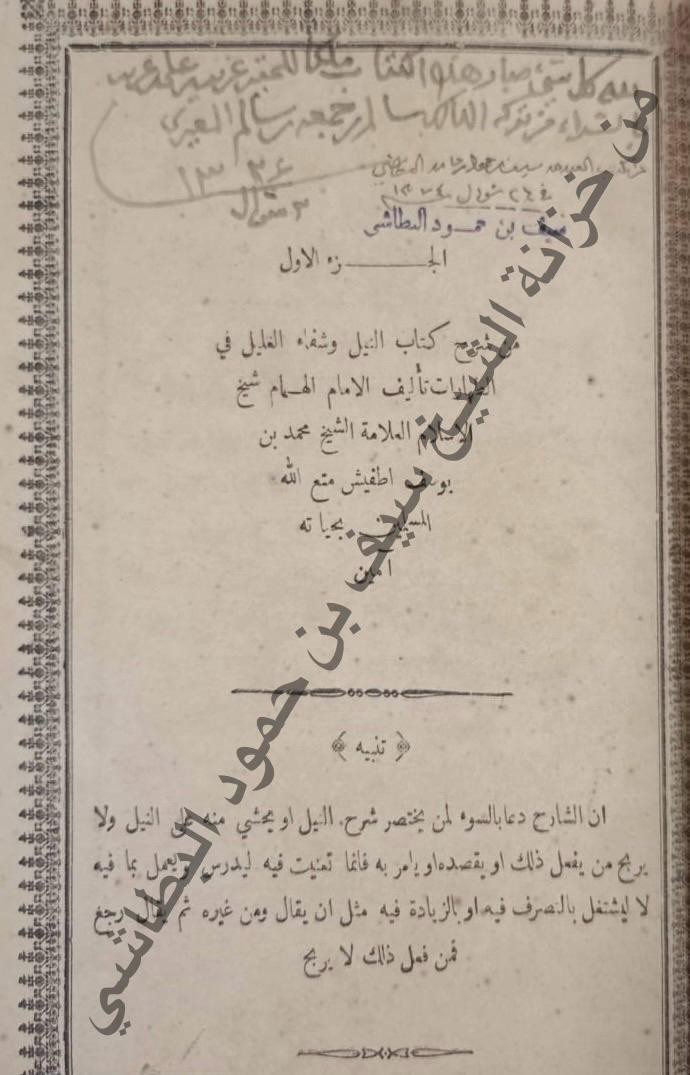 لله كل شيء صار هذا الكتاب ملكا للفقير
بالشراء من تركة الهالك سالم بن جمعه بن سالم العبري
١٣٣٤
٣ شوال
في ٢٤ شوال
سيف بن حمود البطاشي
الجـــــــزء الاول
من شرح كتاب النيل وشفاء الغليل في
الطهارات تأليف الامام الهمام شيخ
الاسلام العلامة الشيخ محمد بن
يوسف اطفيش متع الله
المسلمين بحياته
آمين
﴿ تنبيه ﴾
ان الشارح دعا بالسوء لمن يختصر شرح النيل او يحشي منه على النيل ولا
يربح من يفعل ذلك او يقصده او يامر به فانما تعنيت فيه ليدرس ويعمل بما فيه
لا ليشتغل بالتصرف فيه او بالزيادة فيه مثل ان يقال ومن غيره ثم يقال رجع
فمن فعل ذلك لا يربح
من خزانة الشيخ سيف بن حمود البطاشي